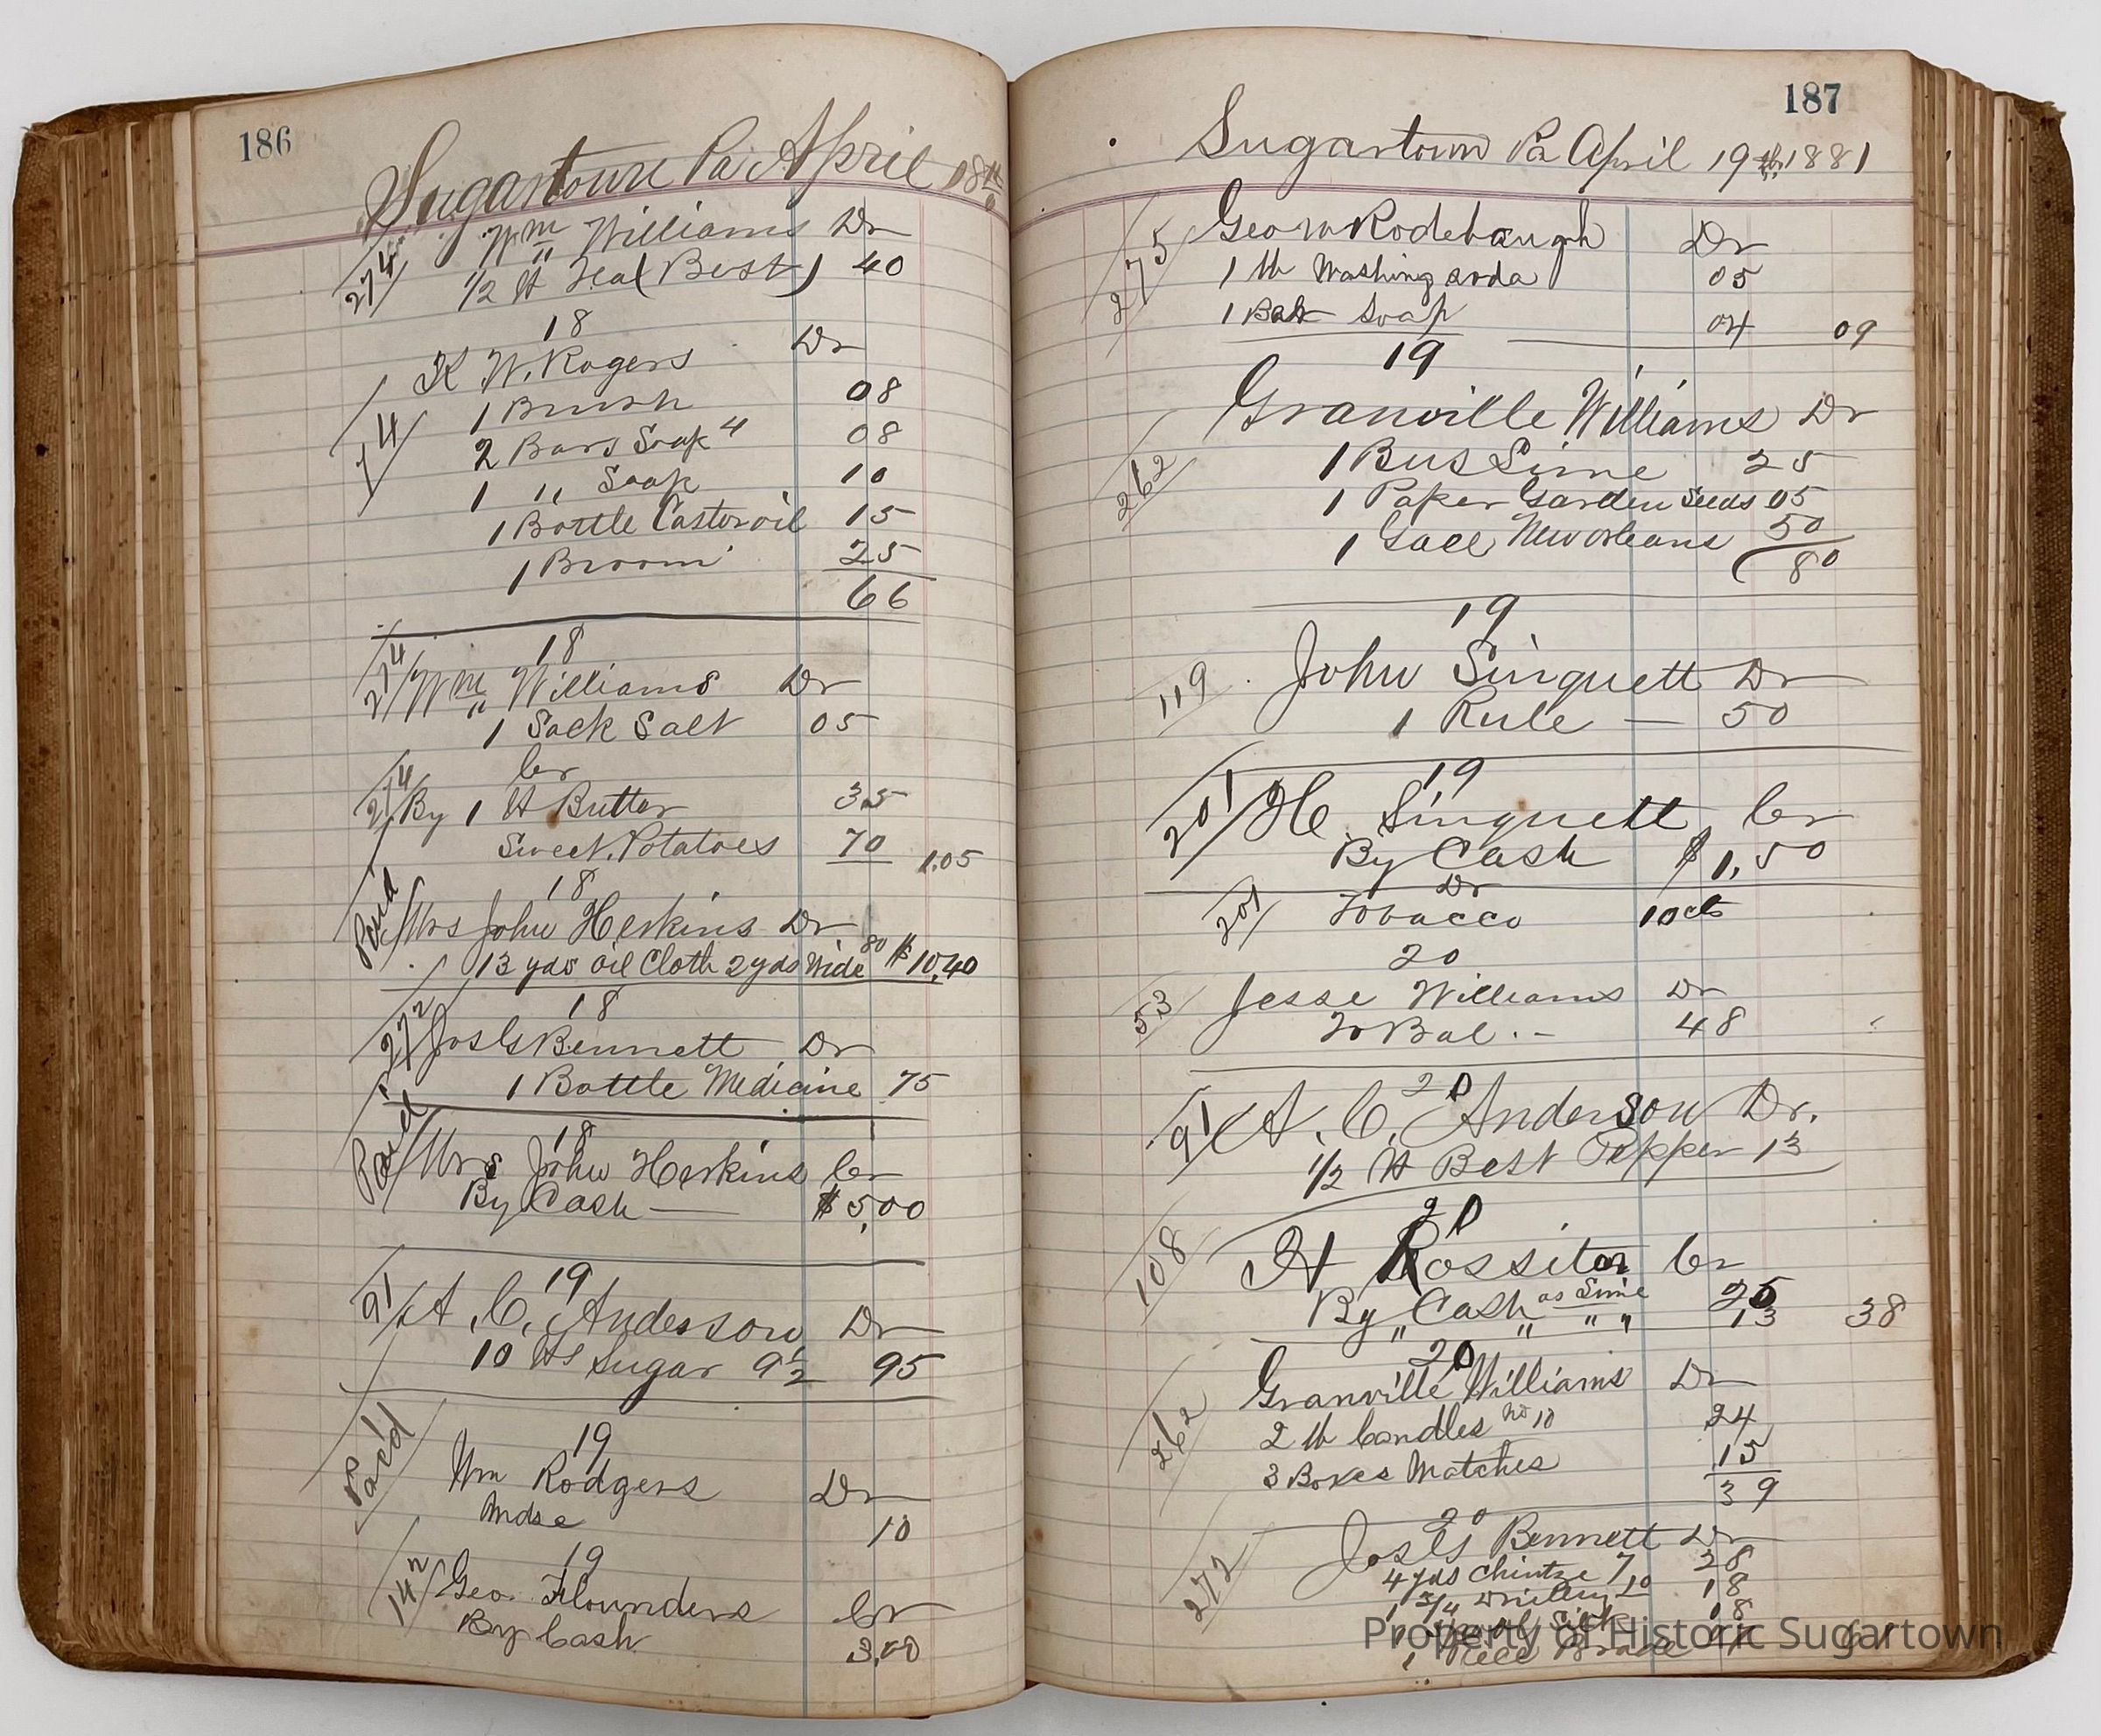 186
Sugartown Pa April 18th
274 Wm Williams Dr
1/2 lb Tea (Best) 40
18
K W. Rogers Dr
74 1 Brush 08
2 Bars Soap 4 08
1 " Soap 10
1 Bottle Castor oil 15
1 Broom 25
66
18
274 Wm Williams Dr
1 Sack Salt 05
Cr
274 By 1 lb Butter 35
Sweet Potatoes 70 1.05
18
Paid Mrs John Herkins Dr
13 yds oil Cloth 2 yds Wide 80 $10.40
18
272 Jos G Bennett Dr
1 Bottle Medicine 75
18
Paid Mrs John Herkins Cr
By Cash — $5,00
19
91 A. C. Anderson Dr
10 lbs Sugar 9 1/2 95
19
Paid Wm Rodgers Dr
Mdse 10
19
142 Geo. Flounders Cr
By Cash 3,00
187
Sugartown Pa April 19th 1881
275 Geo W Rodebaugh Dr
1 lb Washing soda 05
1 Bar Soap 04 09
19
Granville Williams Dr
262 1 Bus Lime 25
1 Paper Garden Seeds 05
1 Gall New Orleans 50
80
19
119 John Singuett Dr
1 Rule — 50
19
201 H. Singuett Cr
By Cash $1,50
Dr
201 Tobacco 10 cts
20
53 Jesse Williams Dr
To Bal. - 48
20
91 A. C. Anderson Dr.
1/2 lb Best Pepper 13
20
108 H Rossiter Cr
By Cash as Lime 25
" " " " 13 38
20
Granville Williams Dr
262 2 lb Candles no 10 24
3 Boxes Matches 15
39
20
272 Jos G Bennett Dr
4 yds Chintze 7 28
1 3/4 Drilling 10 18
1 Spool Silk 08
1 Piece Braid
Property of Historic Sugartown